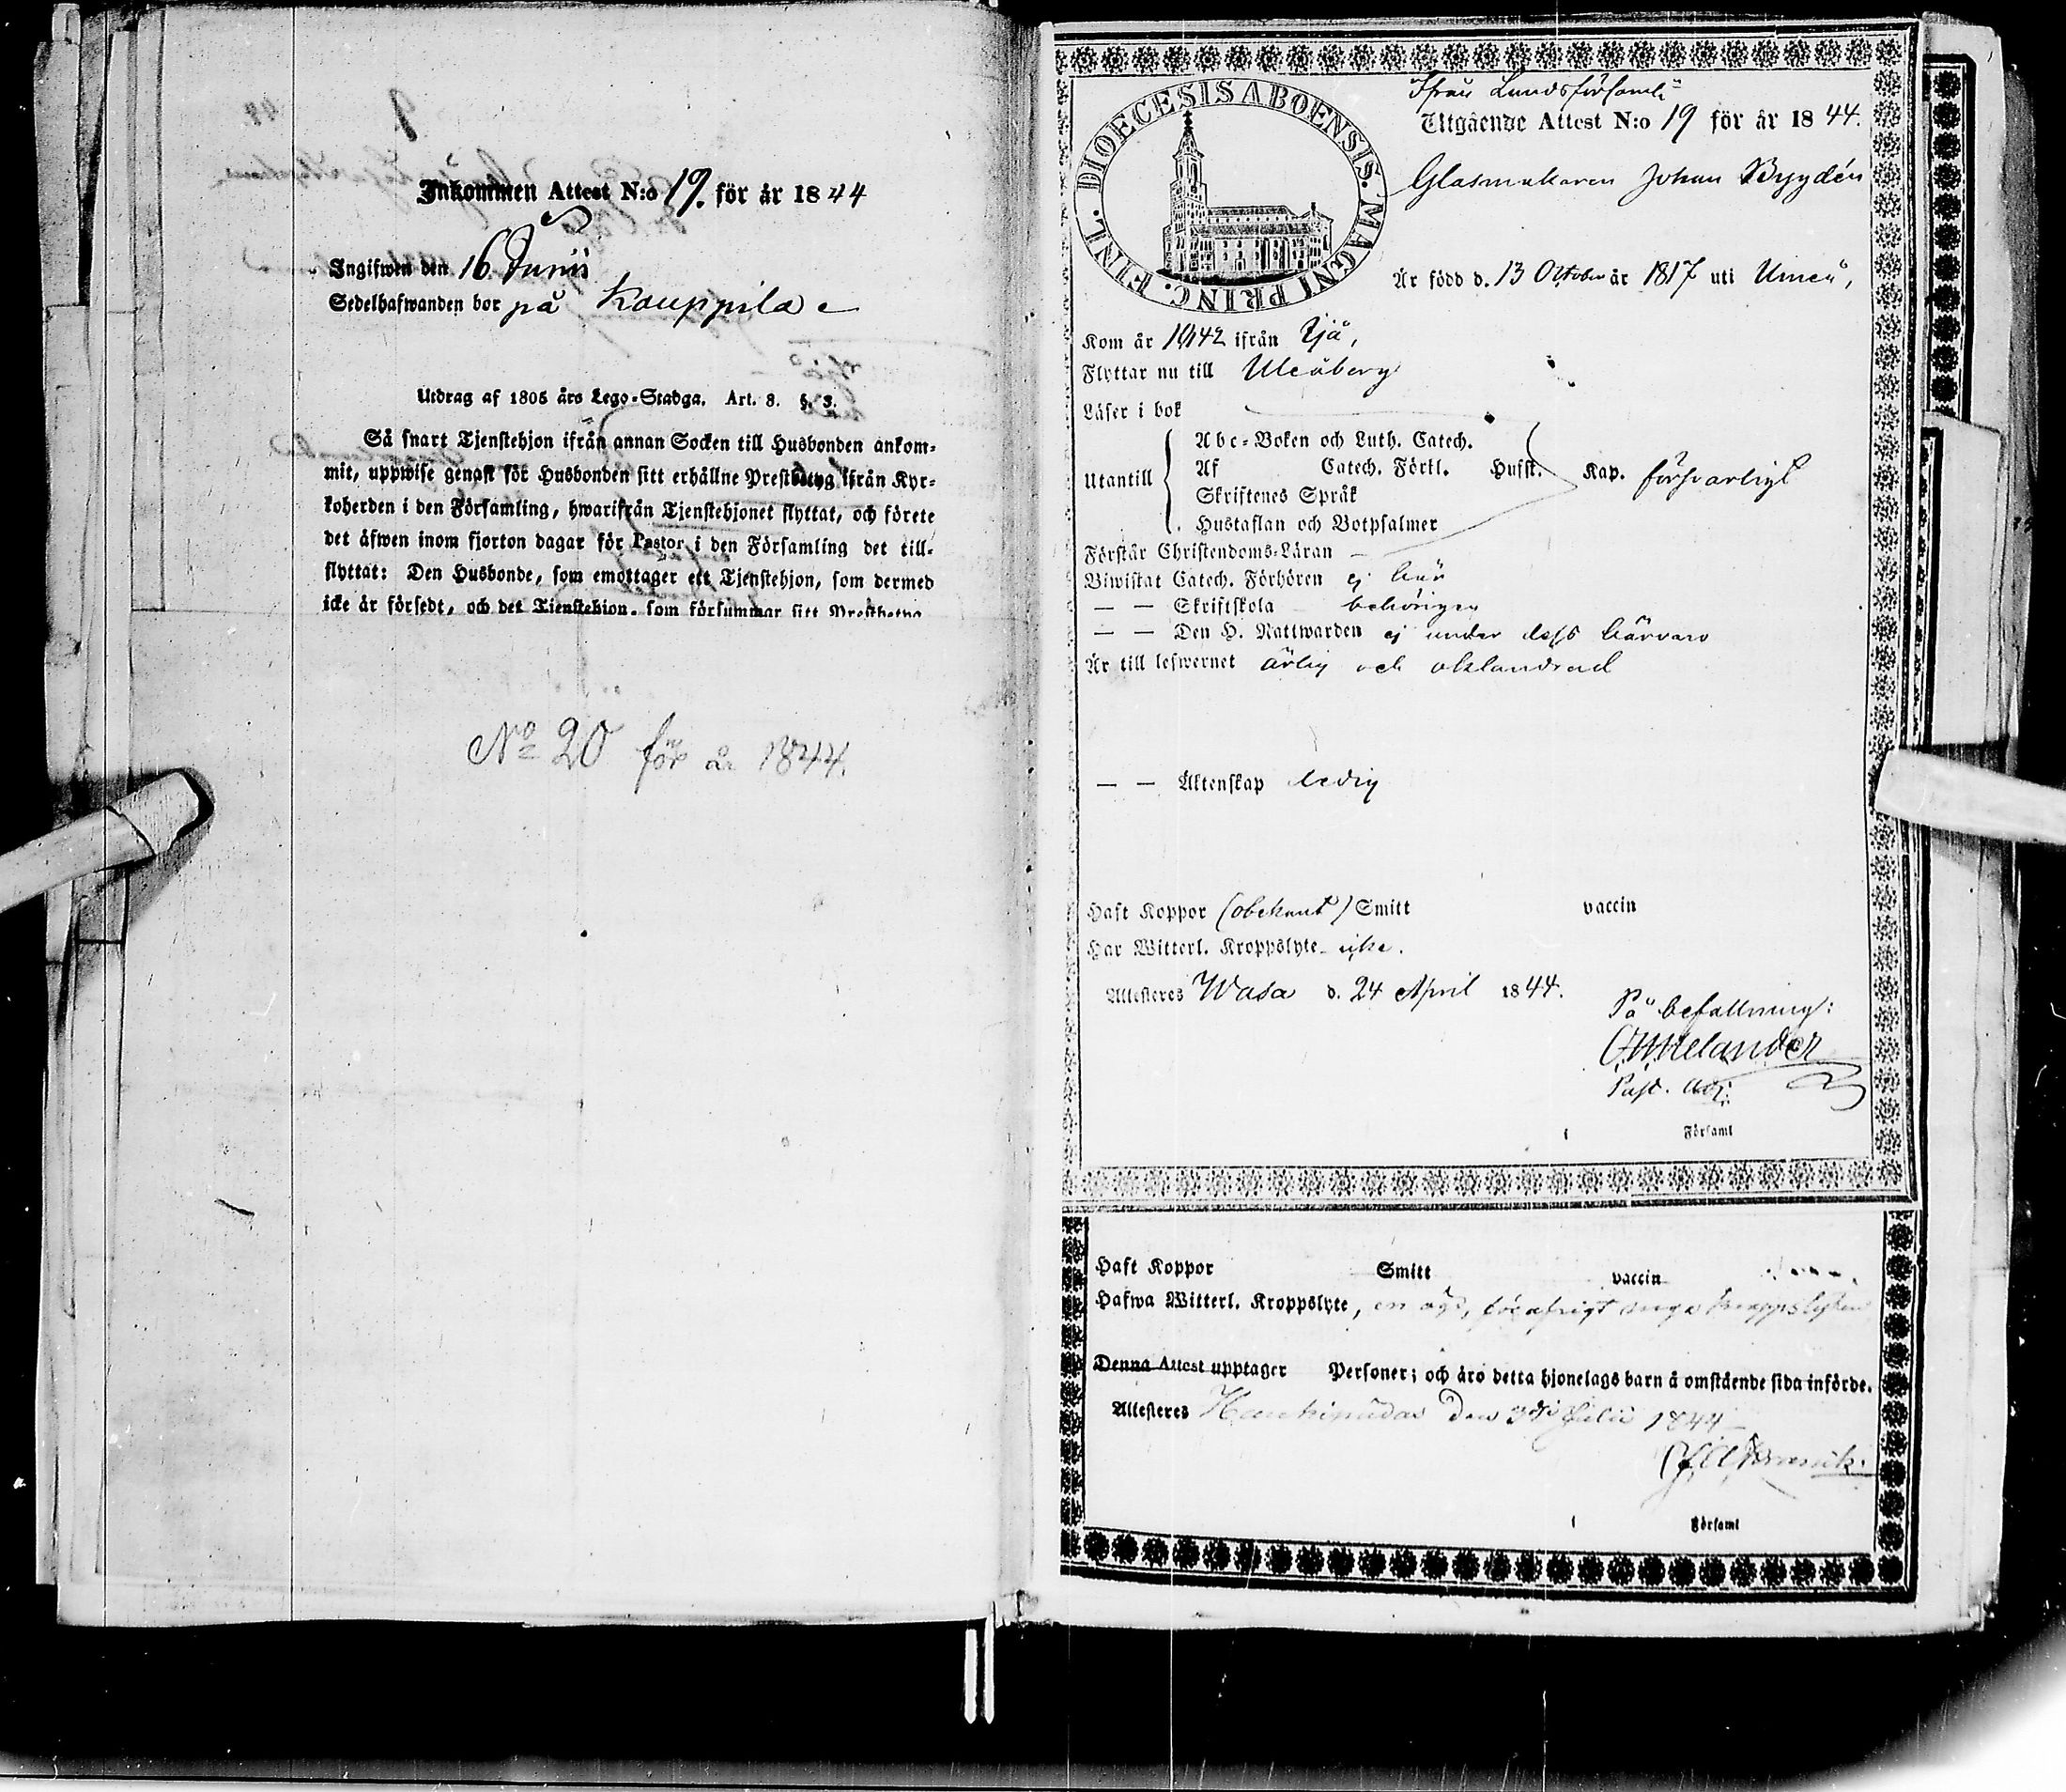 Inkommen Attest N:o 19. för år 1844
Ingifwen den 16 Junii
Sedelhafwanden bor på Kauppila
Utdrag af 1805 års Lego-Stadga. Art. 8. §. 3.
Så snart Tjenstehjon ifrån annan Socken till Husbonden ankom-
mit, uppwise genast för Husbonden sitt erhållne Prestbetyg ifrån Kyr-
koherden i den Församling, hwarifrån Tjenstehjonet flyttat, och förete
det äfwen inom fjorton dagar för Pastor i den Församling det till-
flyttat: Den Husbonde, som emottager ett Tjenstehjon, som dermed
icke är försedt, och det Tjenstehjon, som försummar sitt Prestbetyg
No 20 för år 1844.
DIOECESIS ABOENSIS. MAGNI PRINC. FINL.
Ifrån Landsförsaml:
Utgående Attest N:o 19 för år 1844.
Glasmakaren Johan Brydén
Är född d. 13 October år 1817 uti Umeå,
Kom år 1842 ifrån
Flyttar nu till Uleåborg
Läser i bok
Abc-Boken och Luth. Catech.
Utantill Af Catech. Förkl. Husst. Kap. försvarligt
Skriftenes Språk
Hustaflan och Botpsalmer
Förstår Christendoms-Läran
Biwistat Catech. Förhören ej här
— — Skriftskola behörigen
— — Den H. Nattwarden ej under dess härvaro
Är till lefwernet ärlig och oklandrad
— — Äktenskap ledig
Haft Koppor (obekant) Smitt vaccin
Har Witterl. Kroppslyte icke.
Attesteras Wasa d. 24 April 1844.
På befallning:
Melander
Past. Adj:
i Församl
Haft Koppor Smitt vaccin
Hafwa Witterl. Kroppslyte, en
Denna Attest upptager Personer; och äro detta hjonelags barn å omstående sida införde.
Attesteras Haukipudas den 3 Julii 1844
i Församl